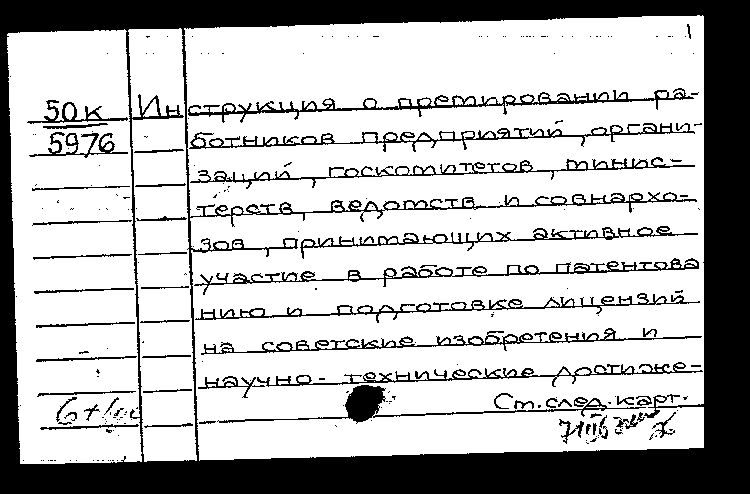 1
50к Инструкция о премировании ра-
5976 ботников предприятий, органи-
заций, госкомитетов, минис-
терств, ведомств и совнархо-
зов, принимающих активное
участие в работе по патентова
нию и подготовке лицензий
на советские изобретения и
научно-технические достиже-
См. след. карт.